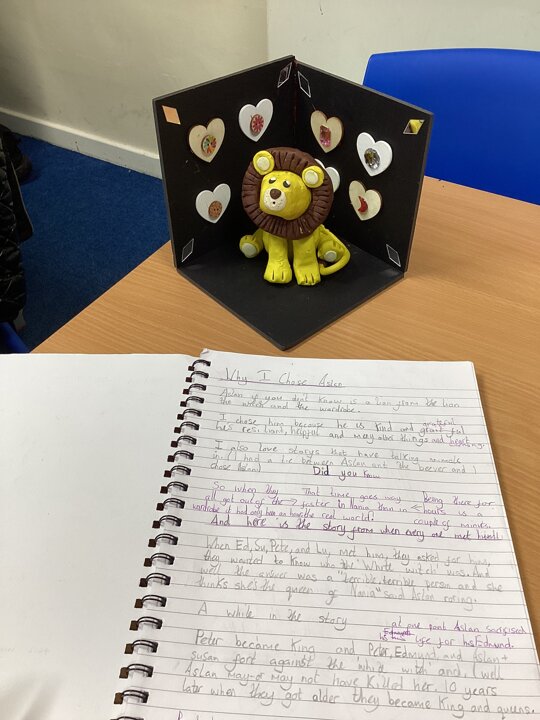 Why I Chose Aslan
Aslan if you dont know is a lion from the lion
the witch and the wardrobe.
I chose him because he is kind and grateful
hes resiliant, helpful and may also things and
I also love storys that have talking animals
in. (I had a tie between Aslan and the beever and I
chose Aslan)
Did you know
So when they
all got out of the
wardrobe it had only been an hour
That time goes way
faster in Nania than in
the real world.
Being there for
hours is a
couple of minutes.
And here is the story from when every one met him!
When Ed, Su, Pete, and Lu, met him, they asked for him,
they wanted to know who the 'White witch' was. And
well the answer was a "terrible, terrible person and she
thinks she's the queen of Nania" said Aslan roring.
A while in the story
at one point Aslan sacrifised
his life for Edmund.
Peter became King and Peter, Edmund, and Aslan +
susan fort against the 'white witch' and, (well
Aslan may or may not have killed her. 10 years
later when they got older they became King and queens.